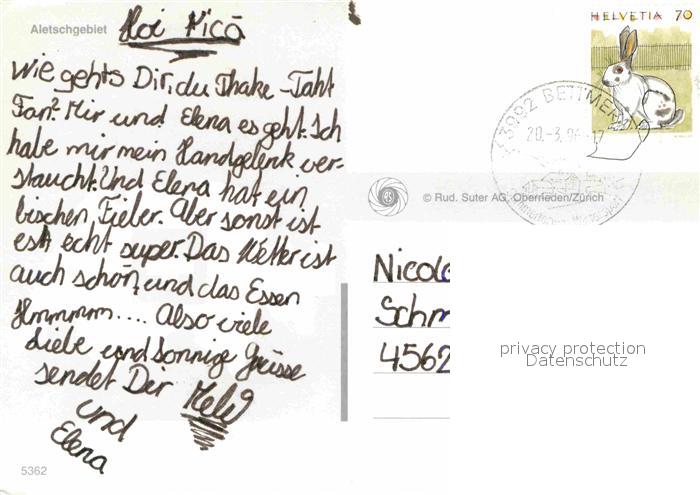 Aletschgebiet
Hoi Nicå
Wie gehts Dir, du Thake-Taht
Fan? Mir und Elena es geht. Ich
habe mir mein Handgelenk ver-
staucht. Und Elena hat ein
bischen Fieler. Aber sonst ist
es echt super. Das Wetter ist
auch schön und das Essen
Hmmmm.... Also viele
Liebe und Sonnige Grüsse
sendet Dir Mele
und
Elena
5362
HELVETIA 70
3992 BETTMER
20.-3.96-17
© Rud. Suter AG, Oberrieden/Zürich
Nicole
Schm
4562
privacy protection
Datenschutz